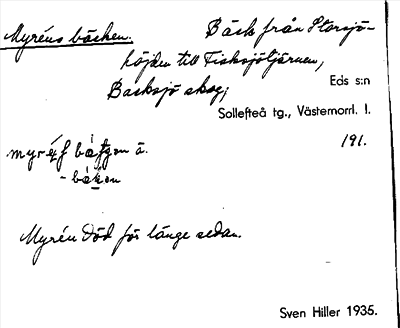 Myréns bäcken. Bäck från Storsjö-
höjden till Fisksjötjärnen,
Backsjö skog;
Eds s:n
Sollefteå tg., Västernorrl. l.
191.
bäken
Myrén död för länge sedan.
Sven Hiller 1935.